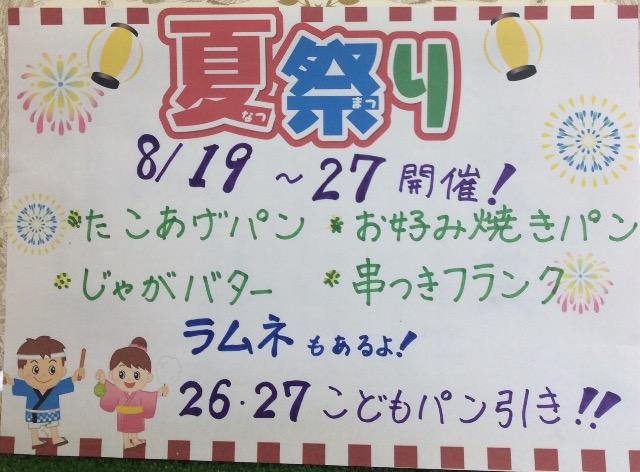 夏祭り
なつ まつ
8/19～27開催!
*たこあげパン *お好み焼きパン
*じゃがバター *串つきフランク
ラムネもあるよ!
26・27こどもパン引き!!